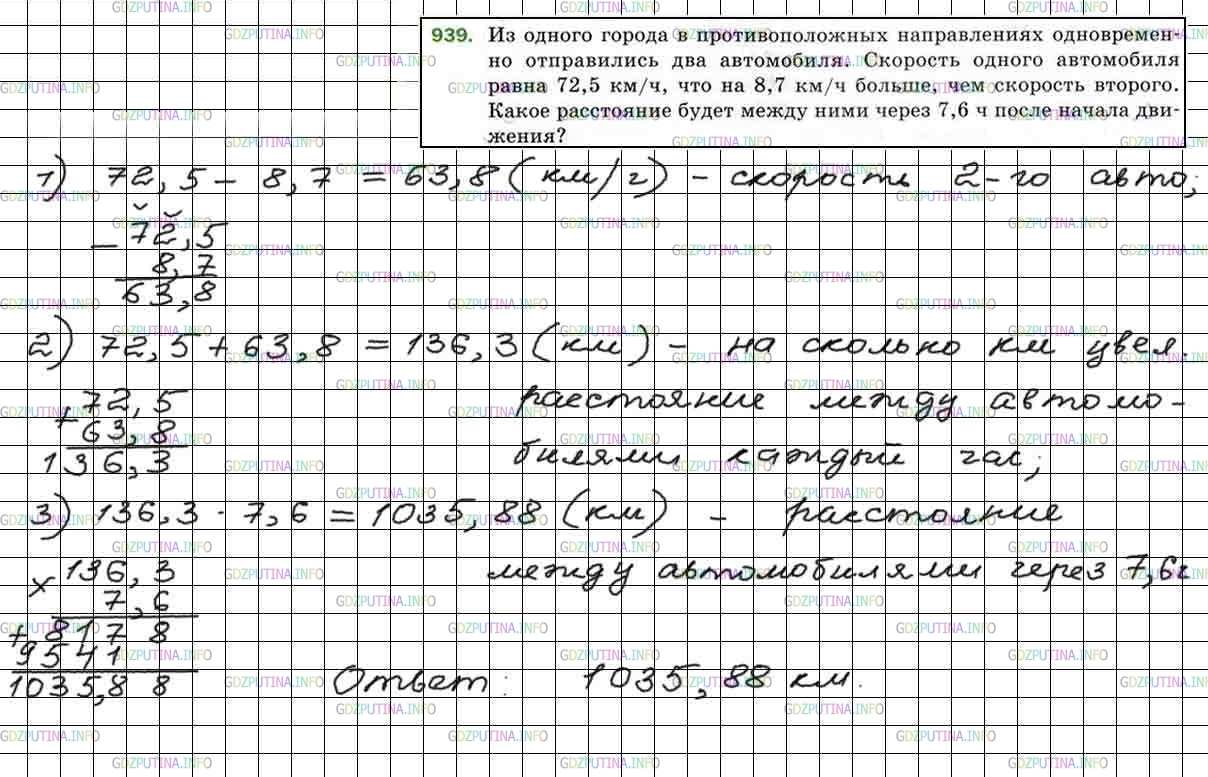 939. Из одного города в противоположных направлениях одновремен-
но отправились два автомобиля. Скорость одного автомобиля
равна 72,5 км/ч, что на 8,7 км/ч больше, чем скорость второго.
Какое расстояние будет между ними через 7,6 ч после начала дви-
жения?
1) 72,5 - 8,7 = 63,8 (км/ч) - скорость 2-го авто;
- 72,5
8,7
63,8
2) 72,5 + 63,8 = 136,3 (км) - на сколько км увел.
расстояние между автомо-
билями каждый час;
+ 72,5
63,8
136,3
3) 136,3 · 7,6 = 1035,88 (км) - расстояние
между автомобилями через 7,6ч
× 136,3
7,6
+ 8178
9541
1035,88
Ответ: 1035,88 км.
GDZPUTINA.INFO